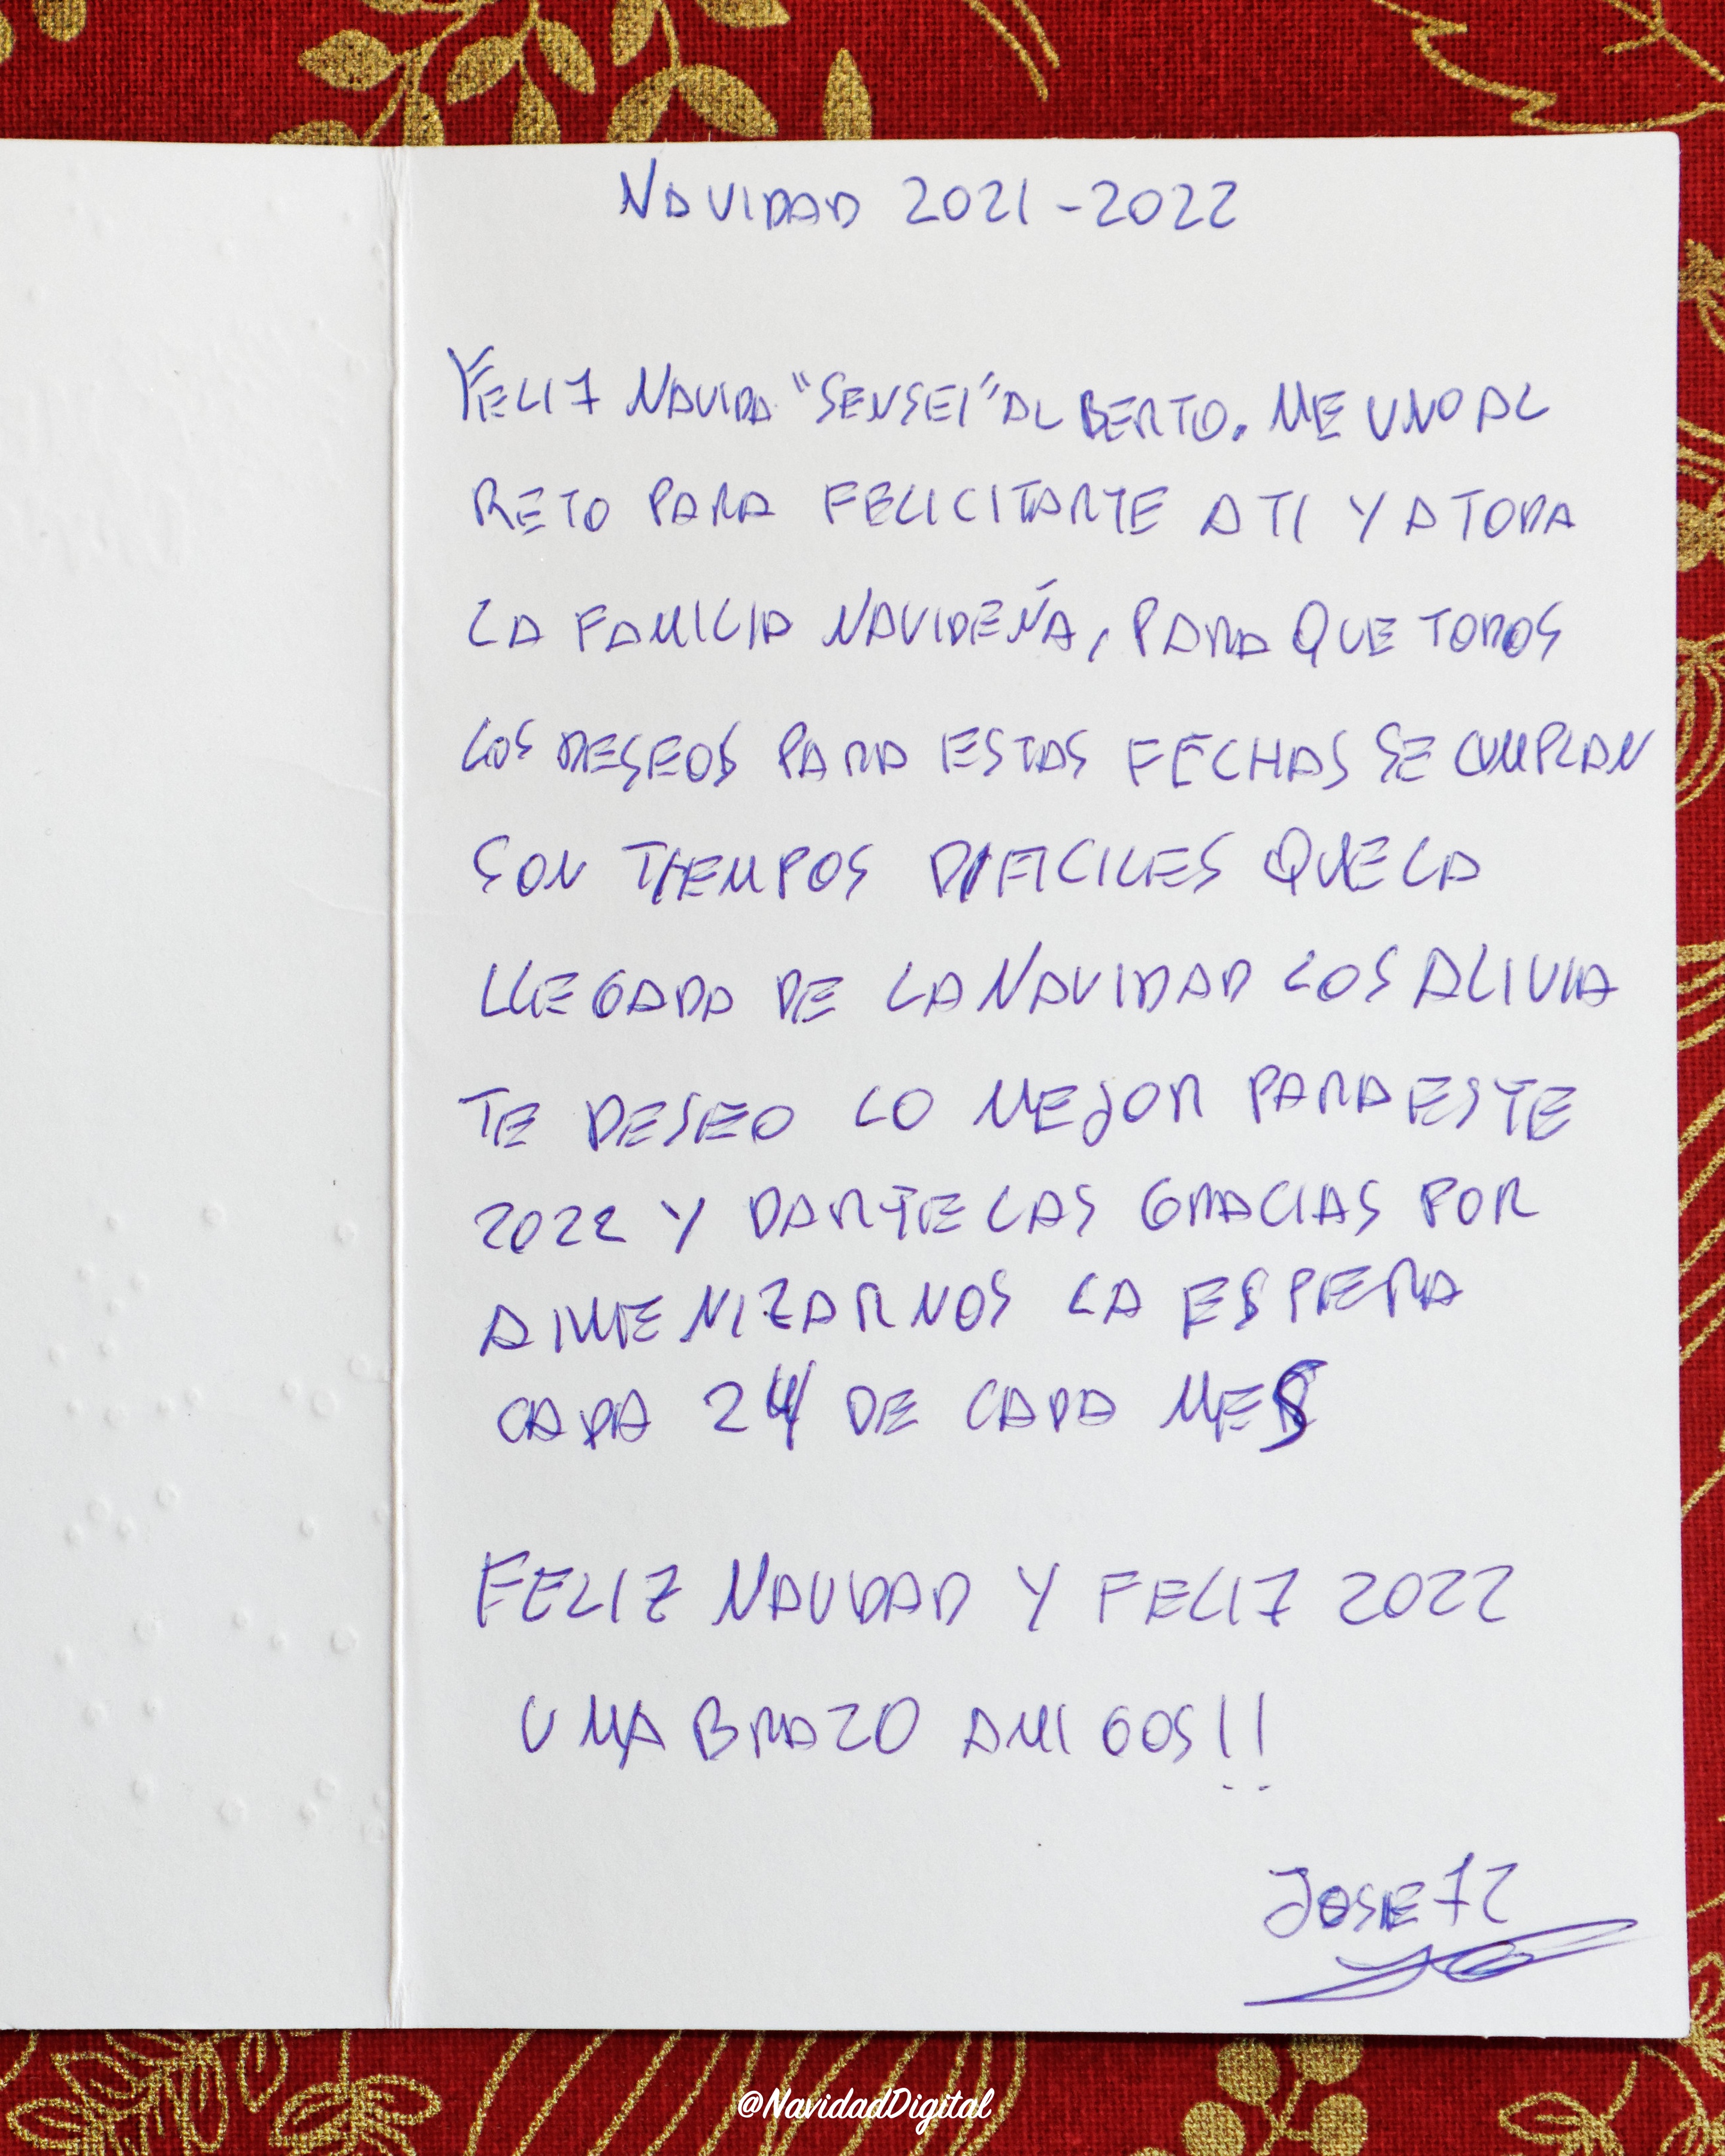 NAVIDAD 2021-2022
FELIZ NAVIDA "SENSEI" ALBERTO. ME UNO AL
RETO PARA FELICITARTE A TI Y A TODA
LA FAMILIA NAVIDEÑA, PARA QUE TODOS
LOS DESEOS PARA ESTAS FECHAS SE CUMPLAN
SON TIEMPOS DIFICILES QUE LA
LLEGADA DE LA NAVIDAD LOS ALIVIA
TE DESEO LO MEJOR PARA ESTE
2022 Y DARTE LAS GRACIAS POR
AMENIZARNOS LA ESPERA
CADA 24 DE CADA MES
FELIZ NAVIDAD Y FELIZ 2022
UN ABRAZO AMIGOS!!
@NavidadDigital